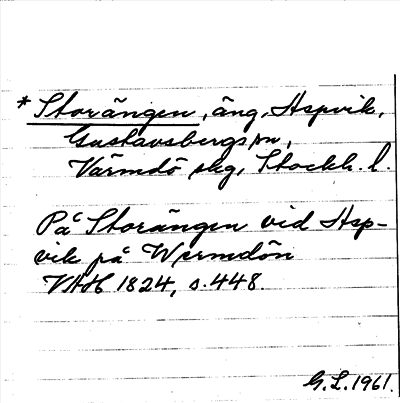 *Storängen, äng, Aspvik,
Gustavsbergs sn,
Värmdö skg, Stockh. l.
På Storängen vid Asp-
vik på Wermdön
VAH 1824, s. 448
G.L. 1961.